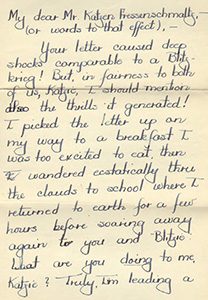 My dear Mr. Katzen Fressenschmaltz, —
(or words to that effect), —
Your letter caused deep
shocks comparable to a Blitz-
krieg! But, in fairness to both
of us, Katzie, I should mention
also the thrills it generated!
I picked the letter up on
my way to a breakfast I
was too excited to eat, then
I wandered ecstatically thru
the clouds to school where I
returned to earth for a few
hours before soaring away
again to you and Blitzie.
What are you doing to me,
Katzie? Truly, I'm leading a